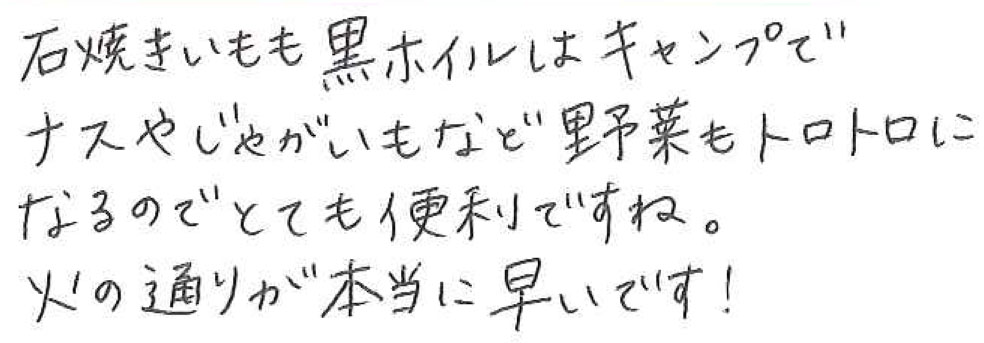 石焼きいもも黒ホイルはキャンプで
ナスやじゃがいもなど野菜もトロトロに
なるのでとても便利ですね。
火の通りが本当に早いです!